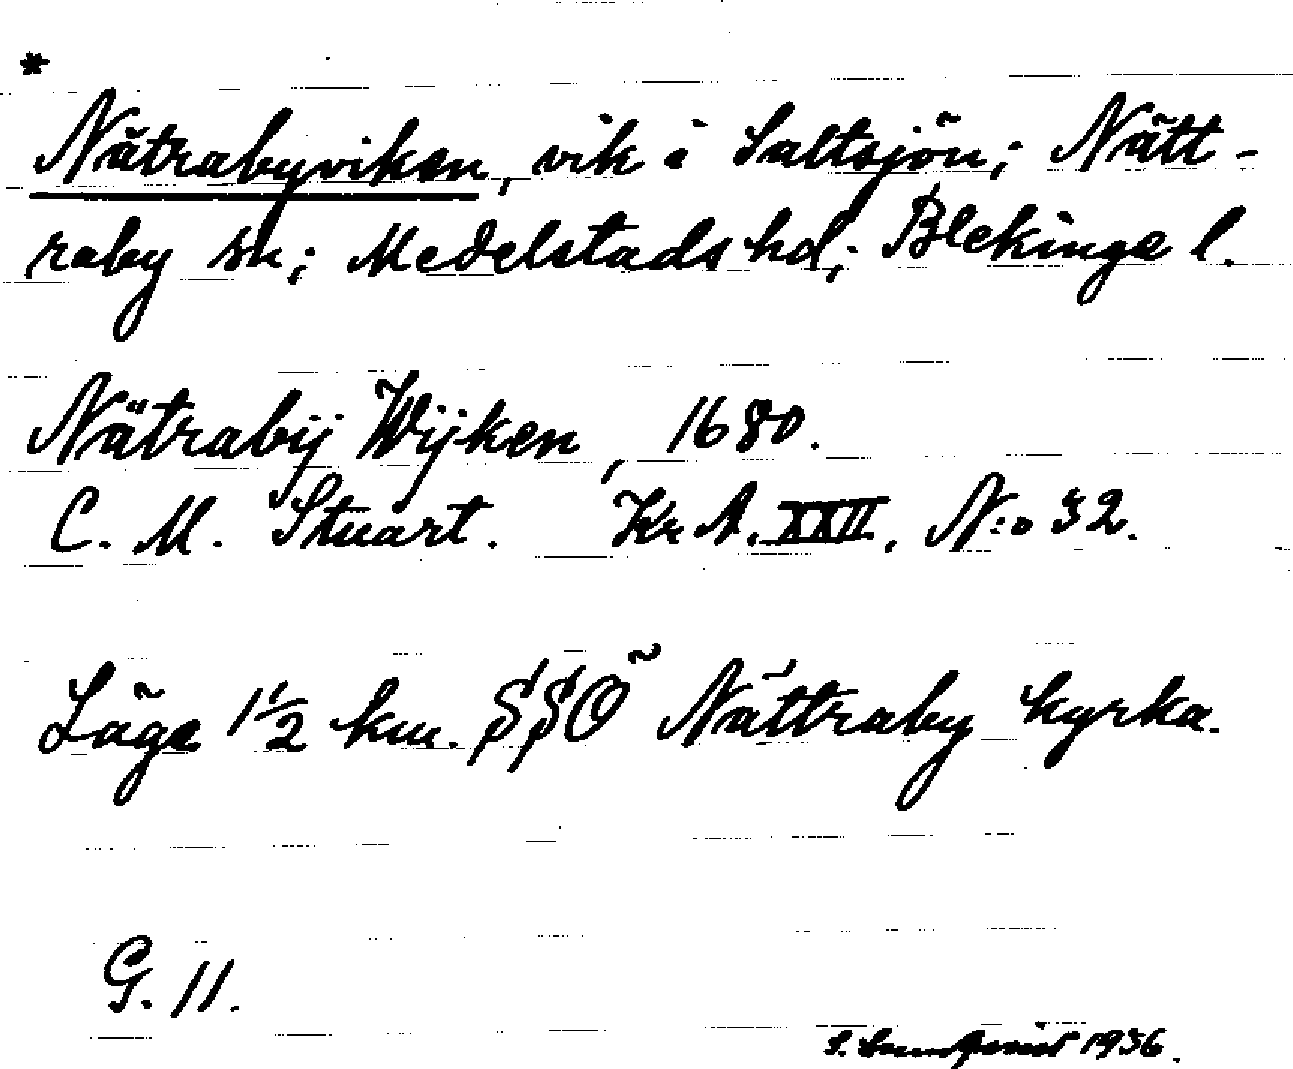 *
Nätrabyviken, vik i Saltsjön; Nätt-
raby sn; Medelstads hd; Blekinge l.
Nätrabÿ Wÿken, 1680.
C. M. Stuart. Kr A. XXII. N:o 32.
Läge 1 1/2 km. SSÖ Nättraby kyrka.
G. 11.
S. 1936.